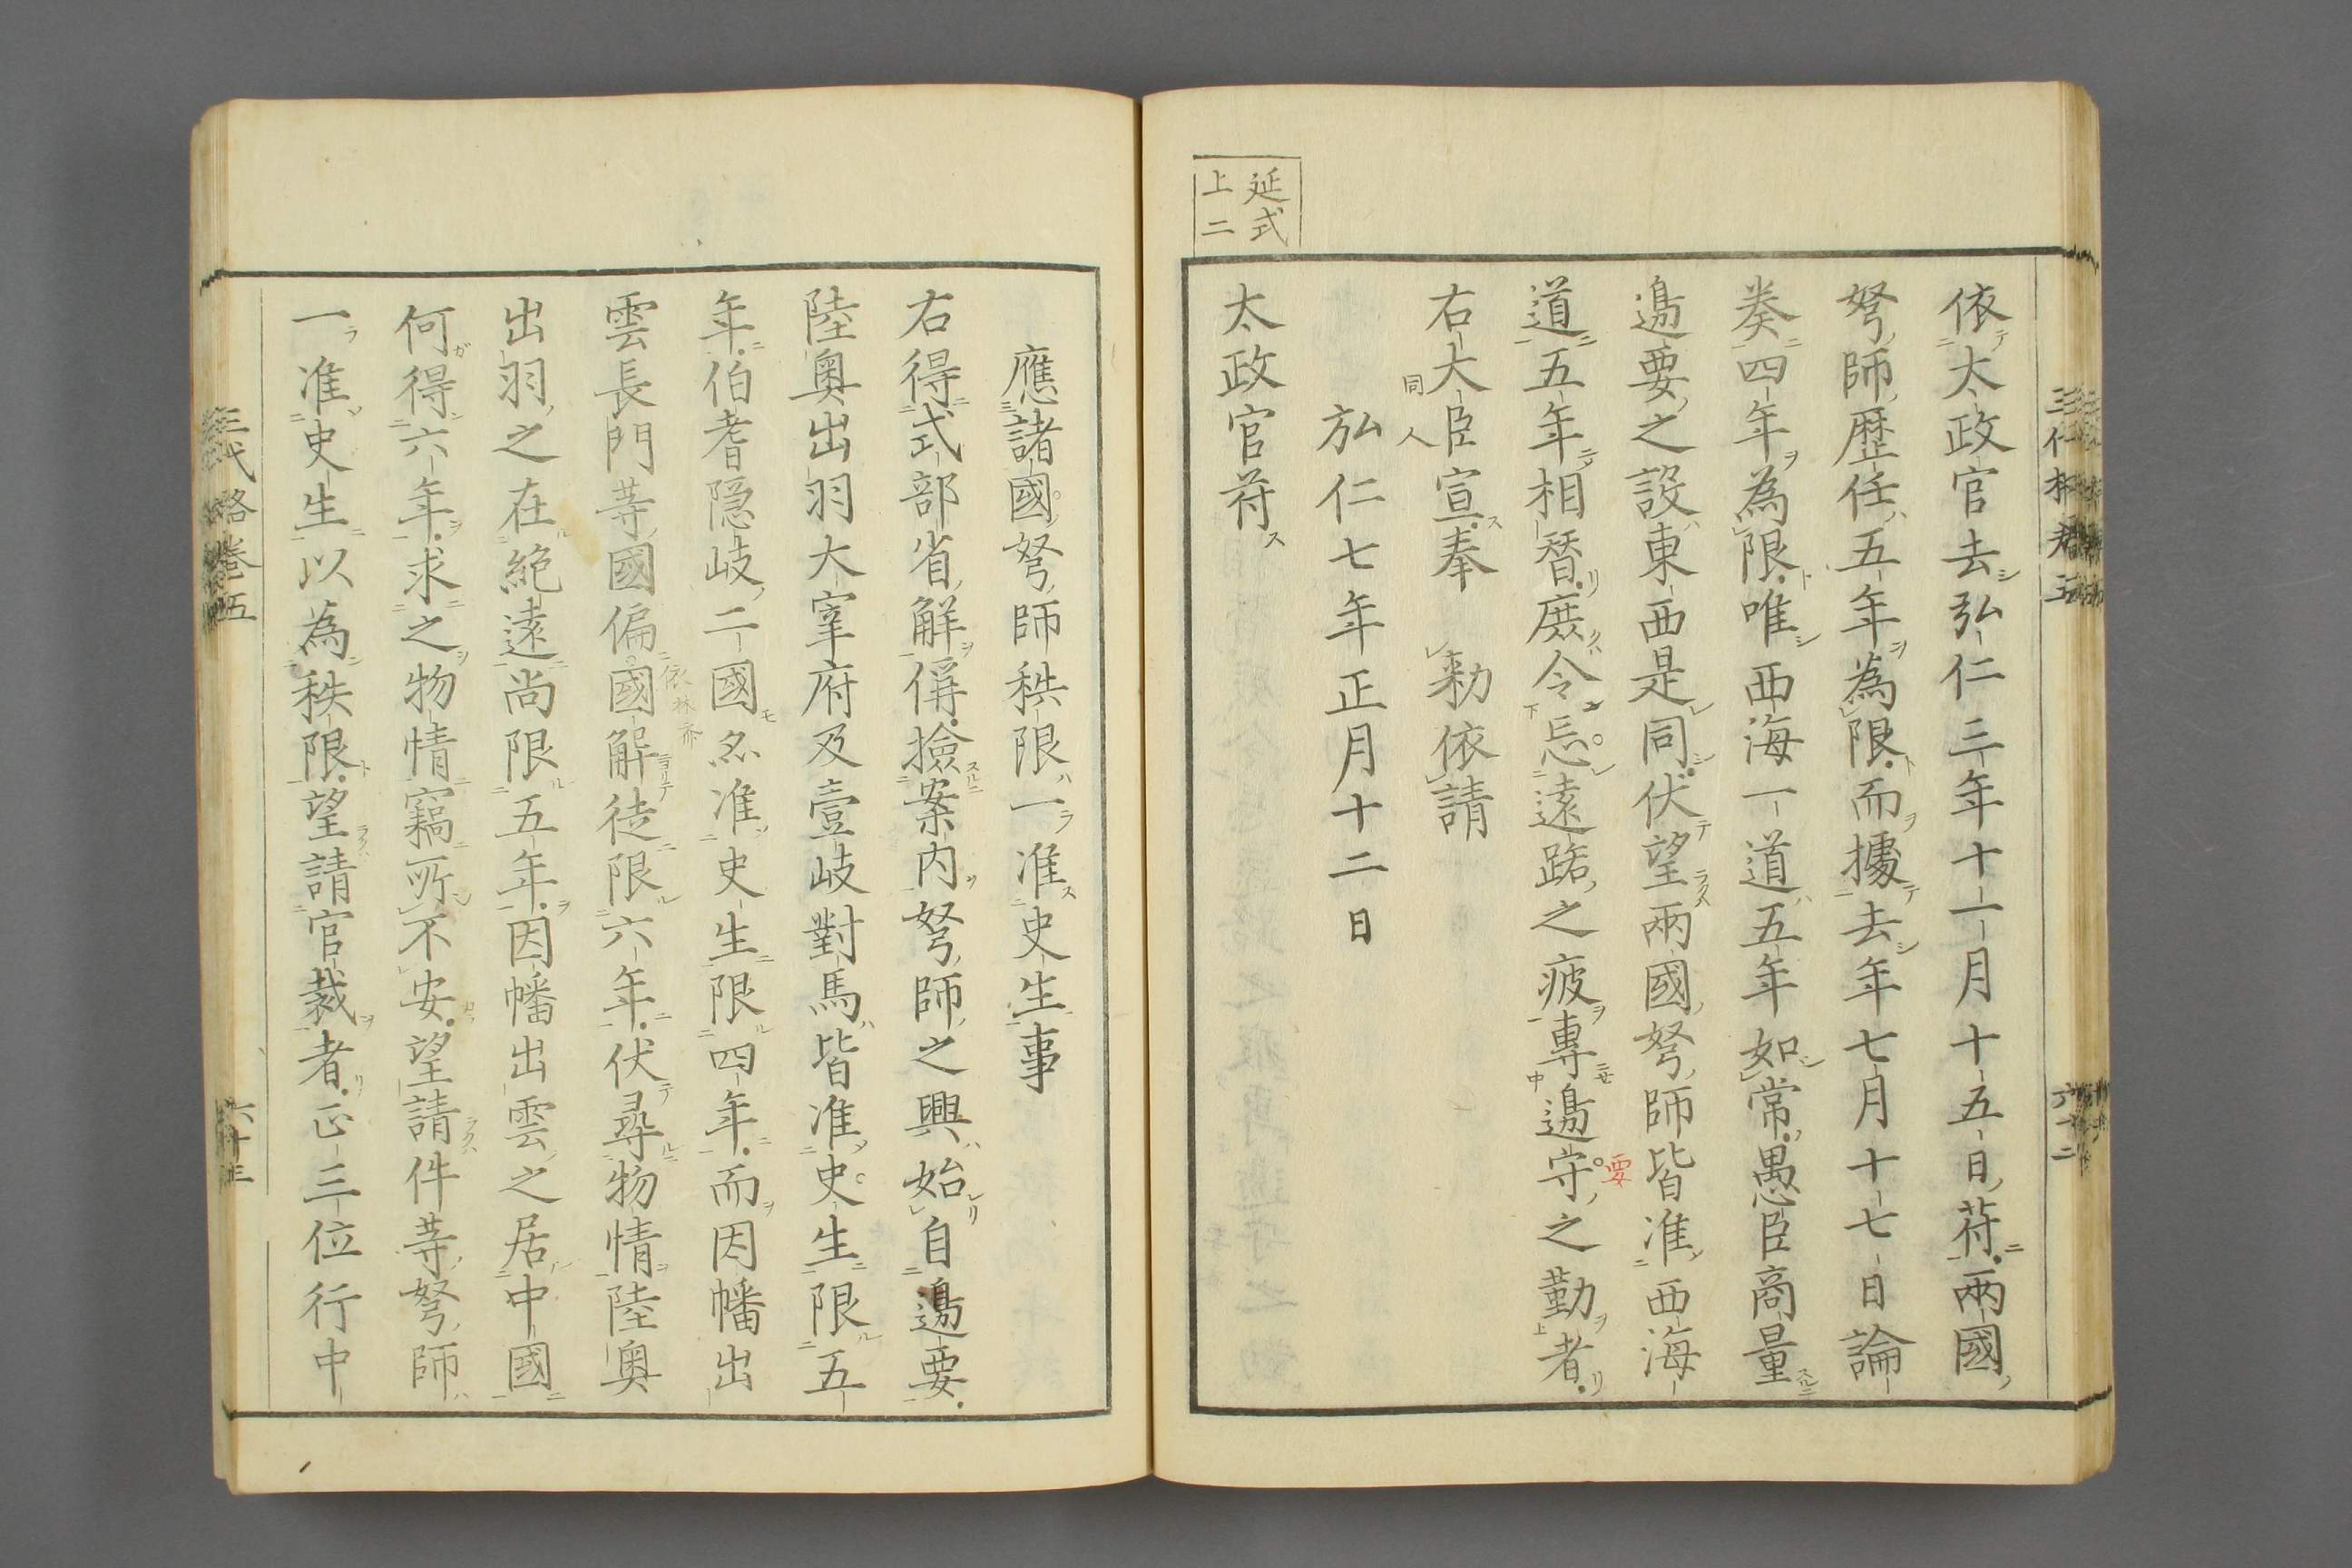 延式
上二
依太政官去弘仁三年十一月十五日符兩國
弩師歴任五年為限而據去年七月十七日論
奏四年為限唯西海一道五年如常愚臣商量
邉要之設東西是同伏望兩國弩師皆准西海
道五年相替庶令忘遠路之疲專邉守之勤者
要
右大臣宣奉　勅依請
同人
弘仁七年正月十二日
太政官符
應諸國弩師秩限一准史生事
右得式部省解偁撿案内弩師之興始自邉要
陸奥出羽大宰府及壹岐對馬皆准史生限五
年伯耆隠岐二國亦准史生限四年而因幡出
雲長門等國偏國解徒限六年伏尋物情陸奥
依林斎
出羽之在絶遠尚限五年因幡出雲之居中國
何得六年求之物情竊所不安望請件等弩師
一准史生以為秩限望請官裁者正三位行中
三代格巻五
六十三